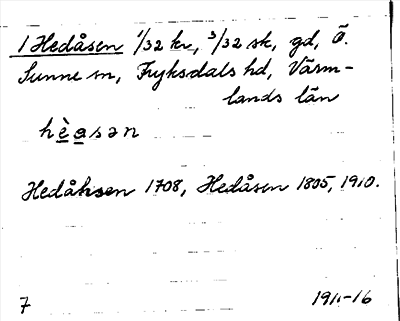 1 Hedåsen 1/32 kr, 3/32 sk, gd, Ö.
Sunne sn, Fryksdals hd, Värm-
lands län
hèasən
Hedåhsen 1708, Hedåsen 1805, 1910.
7 1911-16